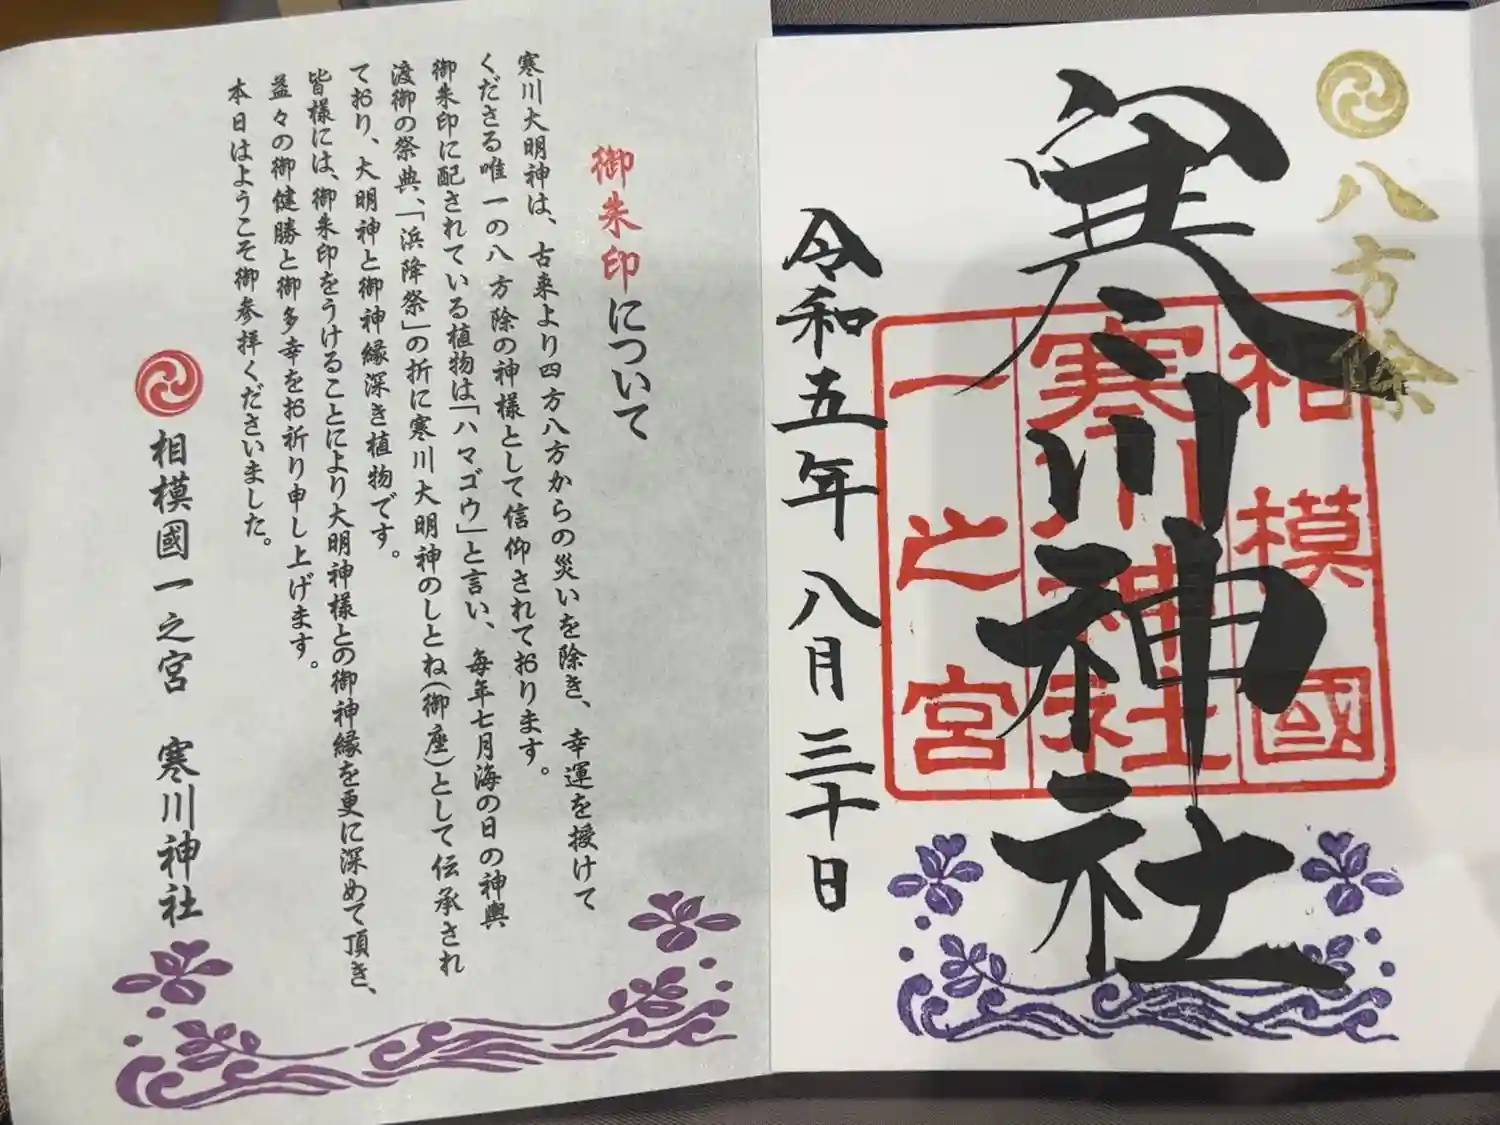 御朱印について
寒川大明神は、古来より四方八方からの災いを除き、幸運を授けて
くださる唯一の八方除の神様として信仰されております。
御朱印に配されている植物は「ハマゴウ」と言い、毎年七月海の日の神輿
渡御の祭典、「浜降祭」の折に寒川大明神のしとね(御座)として伝承され
ており、大明神と御神縁深き植物です。
皆様には、御朱印をうけることにより大明神様との御神縁を更に深めて頂き、
益々の御健勝と御多幸をお祈り申し上げます。
本日はようこそ御参拝くださいました。
相模國一之宮 寒川神社
八方除
寒川神社
相模國
寒川神社
一之宮
令和五年八月三十日